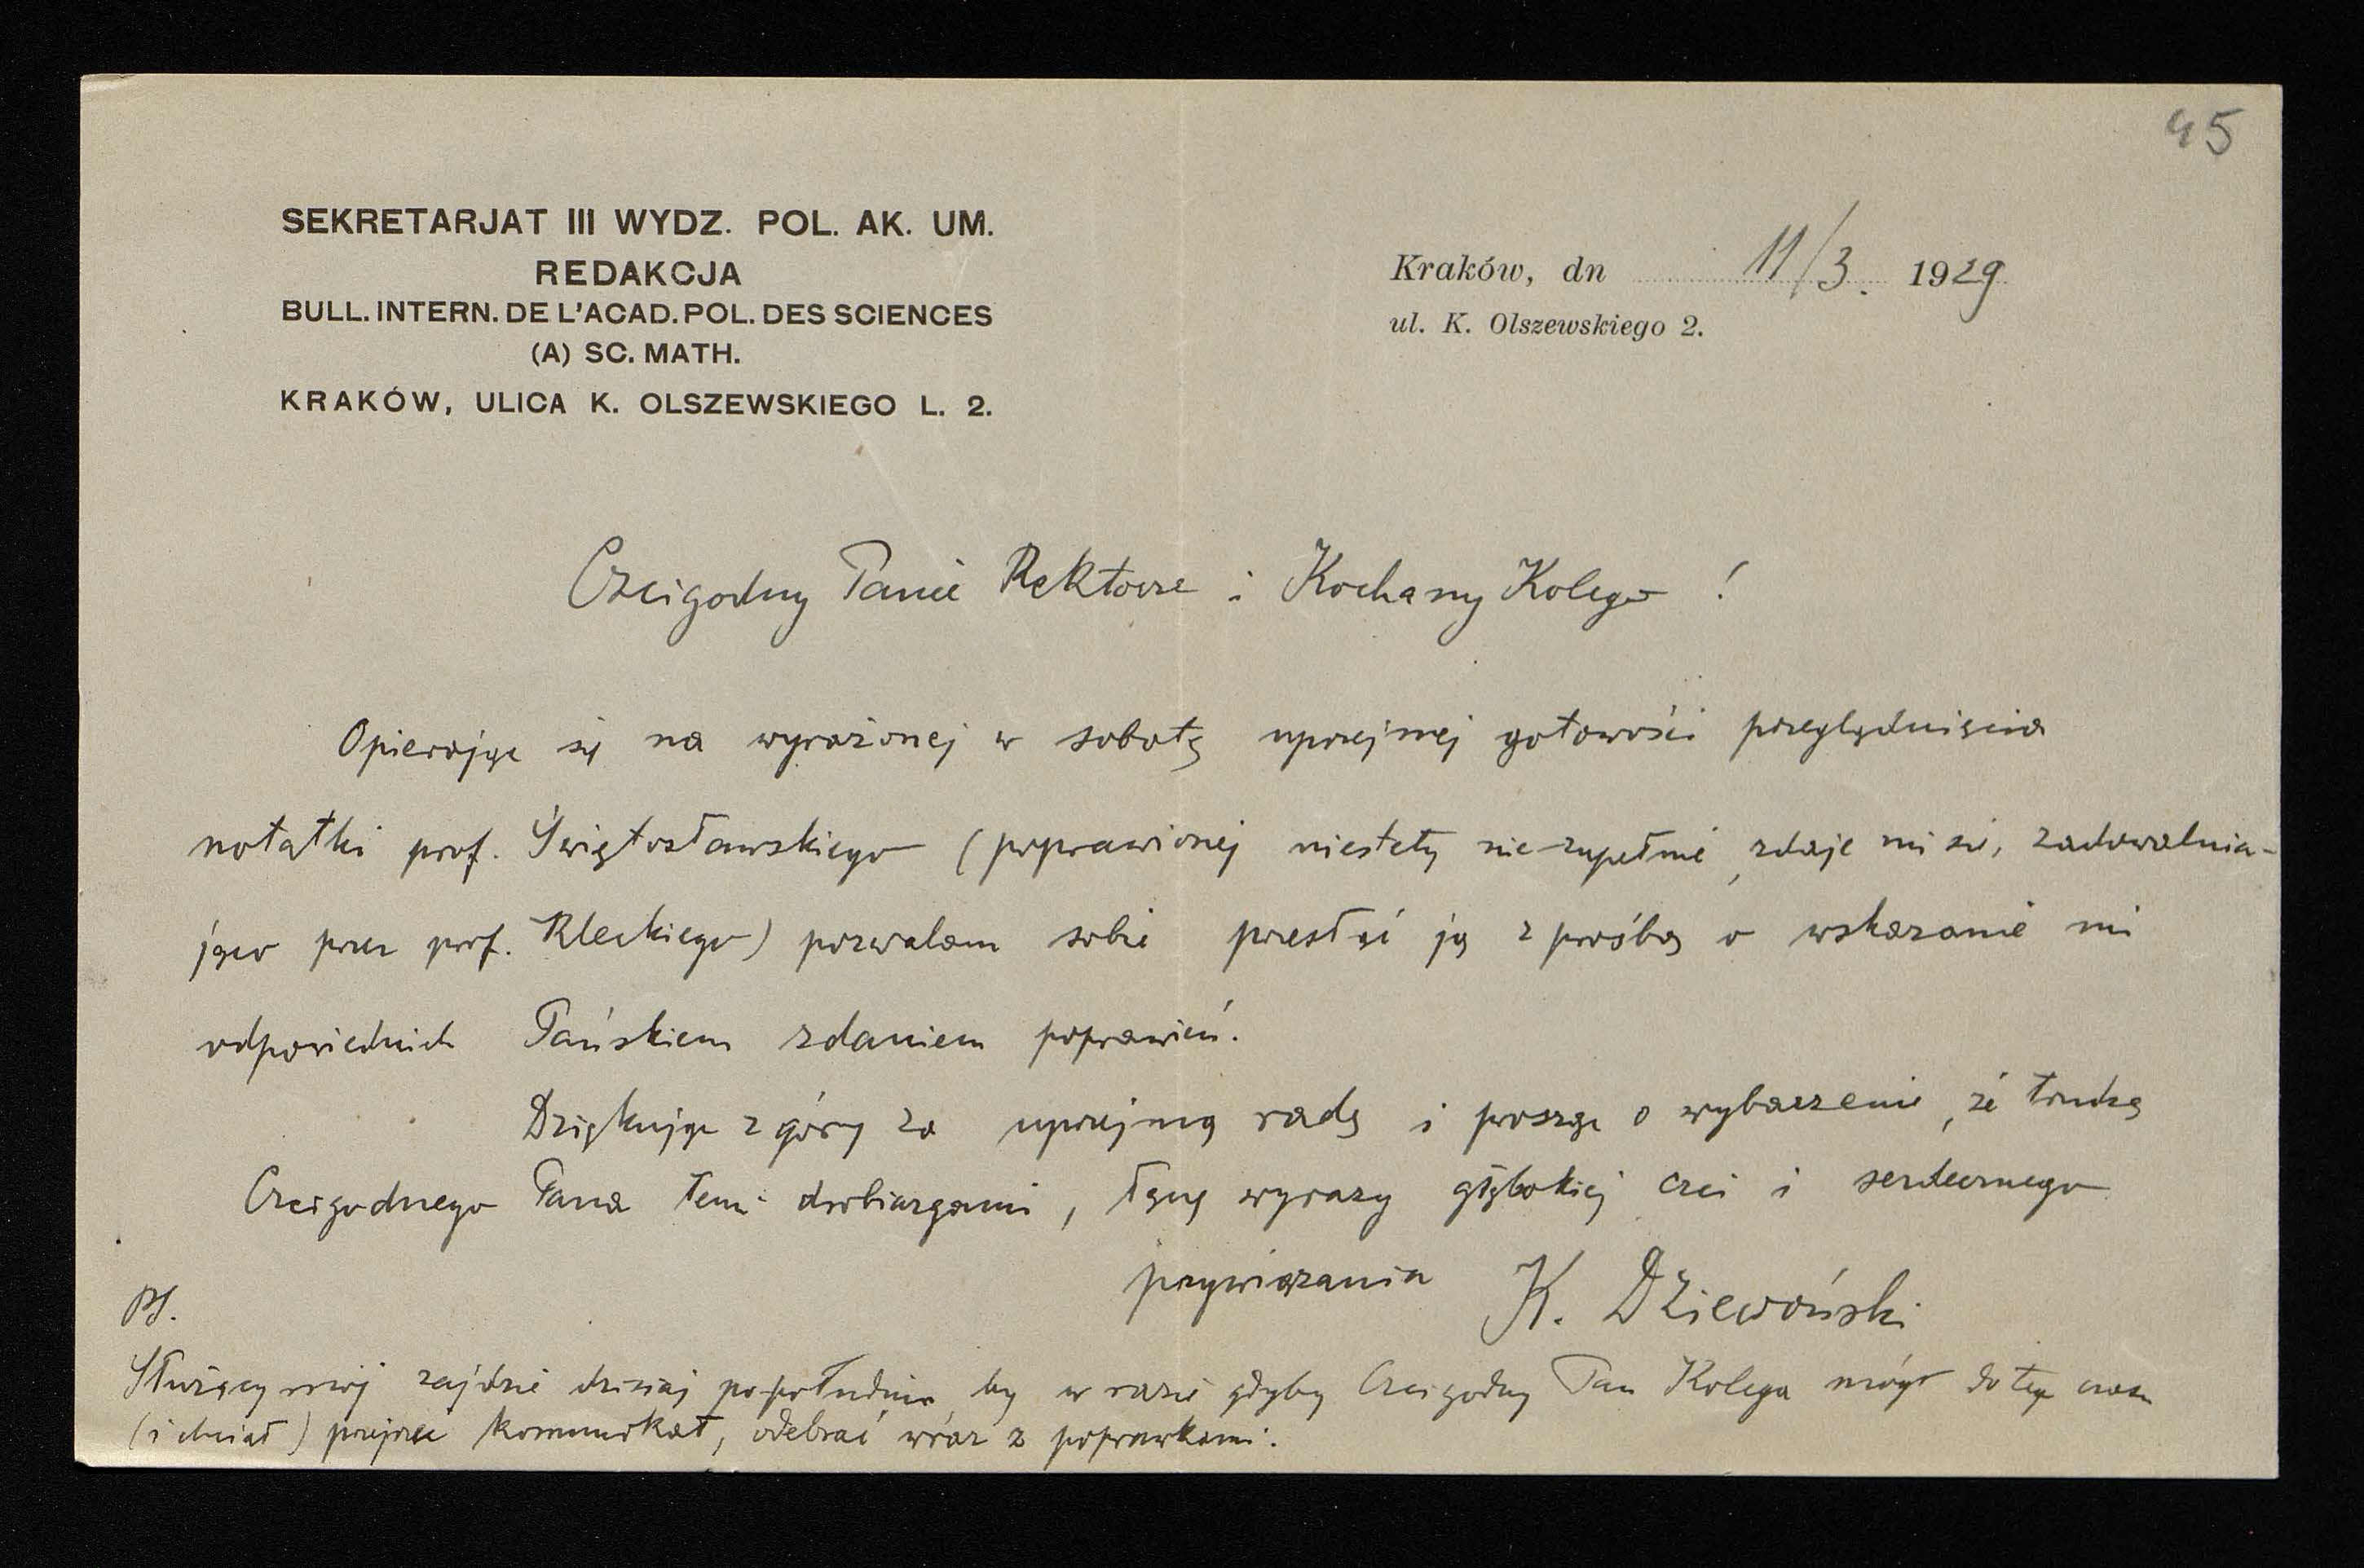 45
SEKRETARJAT III WYDZ. POL. AK. UM.
REDAKCJA
BULL. INTERN. DE L'ACAD. POL. DES SCIENCES
(A) SC. MATH.
KRAKÓW, ULICA K. OLSZEWSKIEGO L. 2.
Kraków, dn 11/3. 1929
ul. K. Olszewskiego 2.
Czcigodny Panie Rektorze i Kochany Kolego !
Opierając się na wyrażonej w sobotę uprzejmej gotowości przeglądnięcia
notatki prof. Świętosławskiego (poprawionej niestety nie zupełnie, zdaje mi się, zadowalnia-
jąco przez prof. Kleckiego) pozwalam sobie przesłać ją z prośbą o wskazanie mi
odpowiednich Pańskiem zdaniem poprawień.
Dziękuję z góry za uprzejmą radę i proszę o wybaczenie, że trudzę
Czcigodnego Pana temi drobiazgami, łączę wyrazy głębokiej czci i serdecznego
przywiązania K. Dziewoński
PS.
Służący mój zajdzie dzisiaj po południu, by w razie gdyby Czcigodny Pan Kolega mógł do tego czasu
(i chciał) przejrzeć komunikat, odebrać wraz z poprawkami.